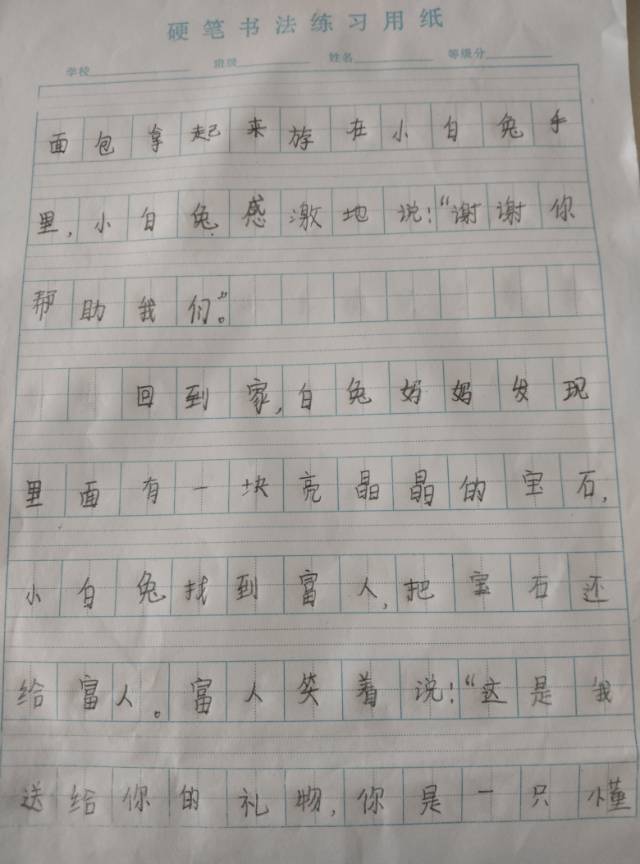 硬笔书法练习用纸
学校 班级 姓名 等级分
面包拿起来放在小白兔手
里,小白兔感激地说:“谢谢你
帮助我们。”
回到家,白兔妈妈发现
里面有一块亮晶晶的宝石,
小白兔找到富人,把宝石还
给富人。富人笑着说:“这是我
送给你的礼物,你是一只懂